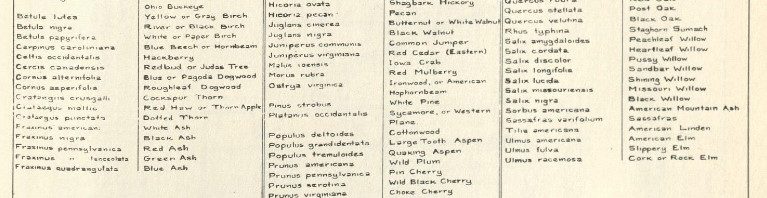 Ohio Buckeye
Betula lutea Yellow or Gray Birch
Betula nigra River or Black Birch
Betula papyrifera White or Paper Birch
Carpinus caroliniana Blue Beech or Hornbeam
Celtis occidentalis Hackberry
Cercis canadensis Redbud or Judas Tree
Cornus alternifolia Blue or Pagoda Dogwood
Cornus asperifolia Roughleaf Dogwood
Crataegus crusgalli Cockspur Thorn
Crataegus mollis Red Haw or Thorn Apple
Crataegus punctata Dotted Thorn
Fraxinus americana White Ash
Fraxinus nigra Black Ash
Fraxinus pennsylvanica Red Ash
Fraxinus " lanceolata Green Ash
Fraxinus quadrangulata Blue Ash
Hicoria ovata Shagbark Hickory
Hicoria pecan Pecan
Juglans cinerea Butternut or White Walnut
Juglans nigra Black Walnut
Juniperus communis Common Juniper
Juniperus virginiana Red Cedar (Eastern)
Malus ioensis Iowa Crab
Morus rubra Red Mulberry
Ostrya virginica Ironwood, or American
Hophornbeam
Pinus strobus White Pine
Platanus occidentalis Sycamore, or Western
Plane
Populus deltoides Cottonwood
Populus grandidentata Large Tooth Aspen
Populus tremuloides Quaking Aspen
Prunus americana Wild Plum
Prunus pennsylvanica Pin Cherry
Prunus serotina Wild Black Cherry
Prunus virginiana Choke Cherry
Quercus
Quercus stellata Post Oak
Quercus velutna Black Oak
Rhus typhina Staghorn Sumach
Salix amygdaloides Peachleaf Willow
Salix cordata Heartleaf Willow
Salix discolor Pussy Willow
Salix longifolia Sandbar Willow
Salix lucida Shining Willow
Salix missouriensis Missouri Willow
Salix nigra Black Willow
Sorbus americana American Mountain Ash
Sassafras varifolium Sassafras
Tilia americana American Linden
Ulmus americana American Elm
Ulmus fulva Slippery Elm
Ulmus racemosa Cork or Rock Elm